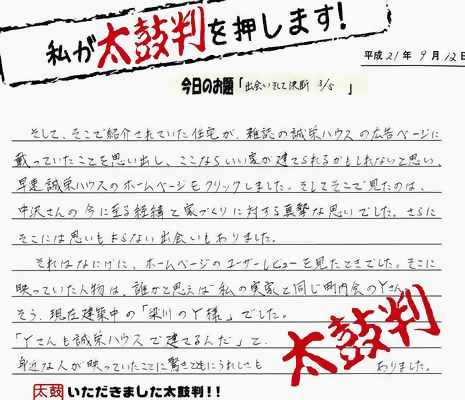 私が太鼓判を押します!
平成21年 9月 12日
今日のお題「出会いそして決断 3/5 」
そして、そこで紹介されていた住宅が、雑誌の誠栄ハウスの広告ページに
載っていたことを思い出し、ここならいい家が建てられるかもしれないと思い、
早速誠栄ハウスのホームページをクリックしました。そしてそこで見たのは、
中沢さんの今に至る経緯と家づくりに対する真摯な思いでした。さらに
そこには思いもよらない出会いもありました。
それはなにげに、ホームページのユーザーレビューを見たときでした。そこに
映っていた人物は、誰かと思えば私の実家と同じ町内会のYさん。
そう、現在建築中の「梁川のY様」でした。
「Yさんも誠栄ハウスで建てるんだ」て、
身近な人が映っていたことに驚きとともにうれしさも ありました。
太鼓判
太鼓 いただきました太鼓判!!